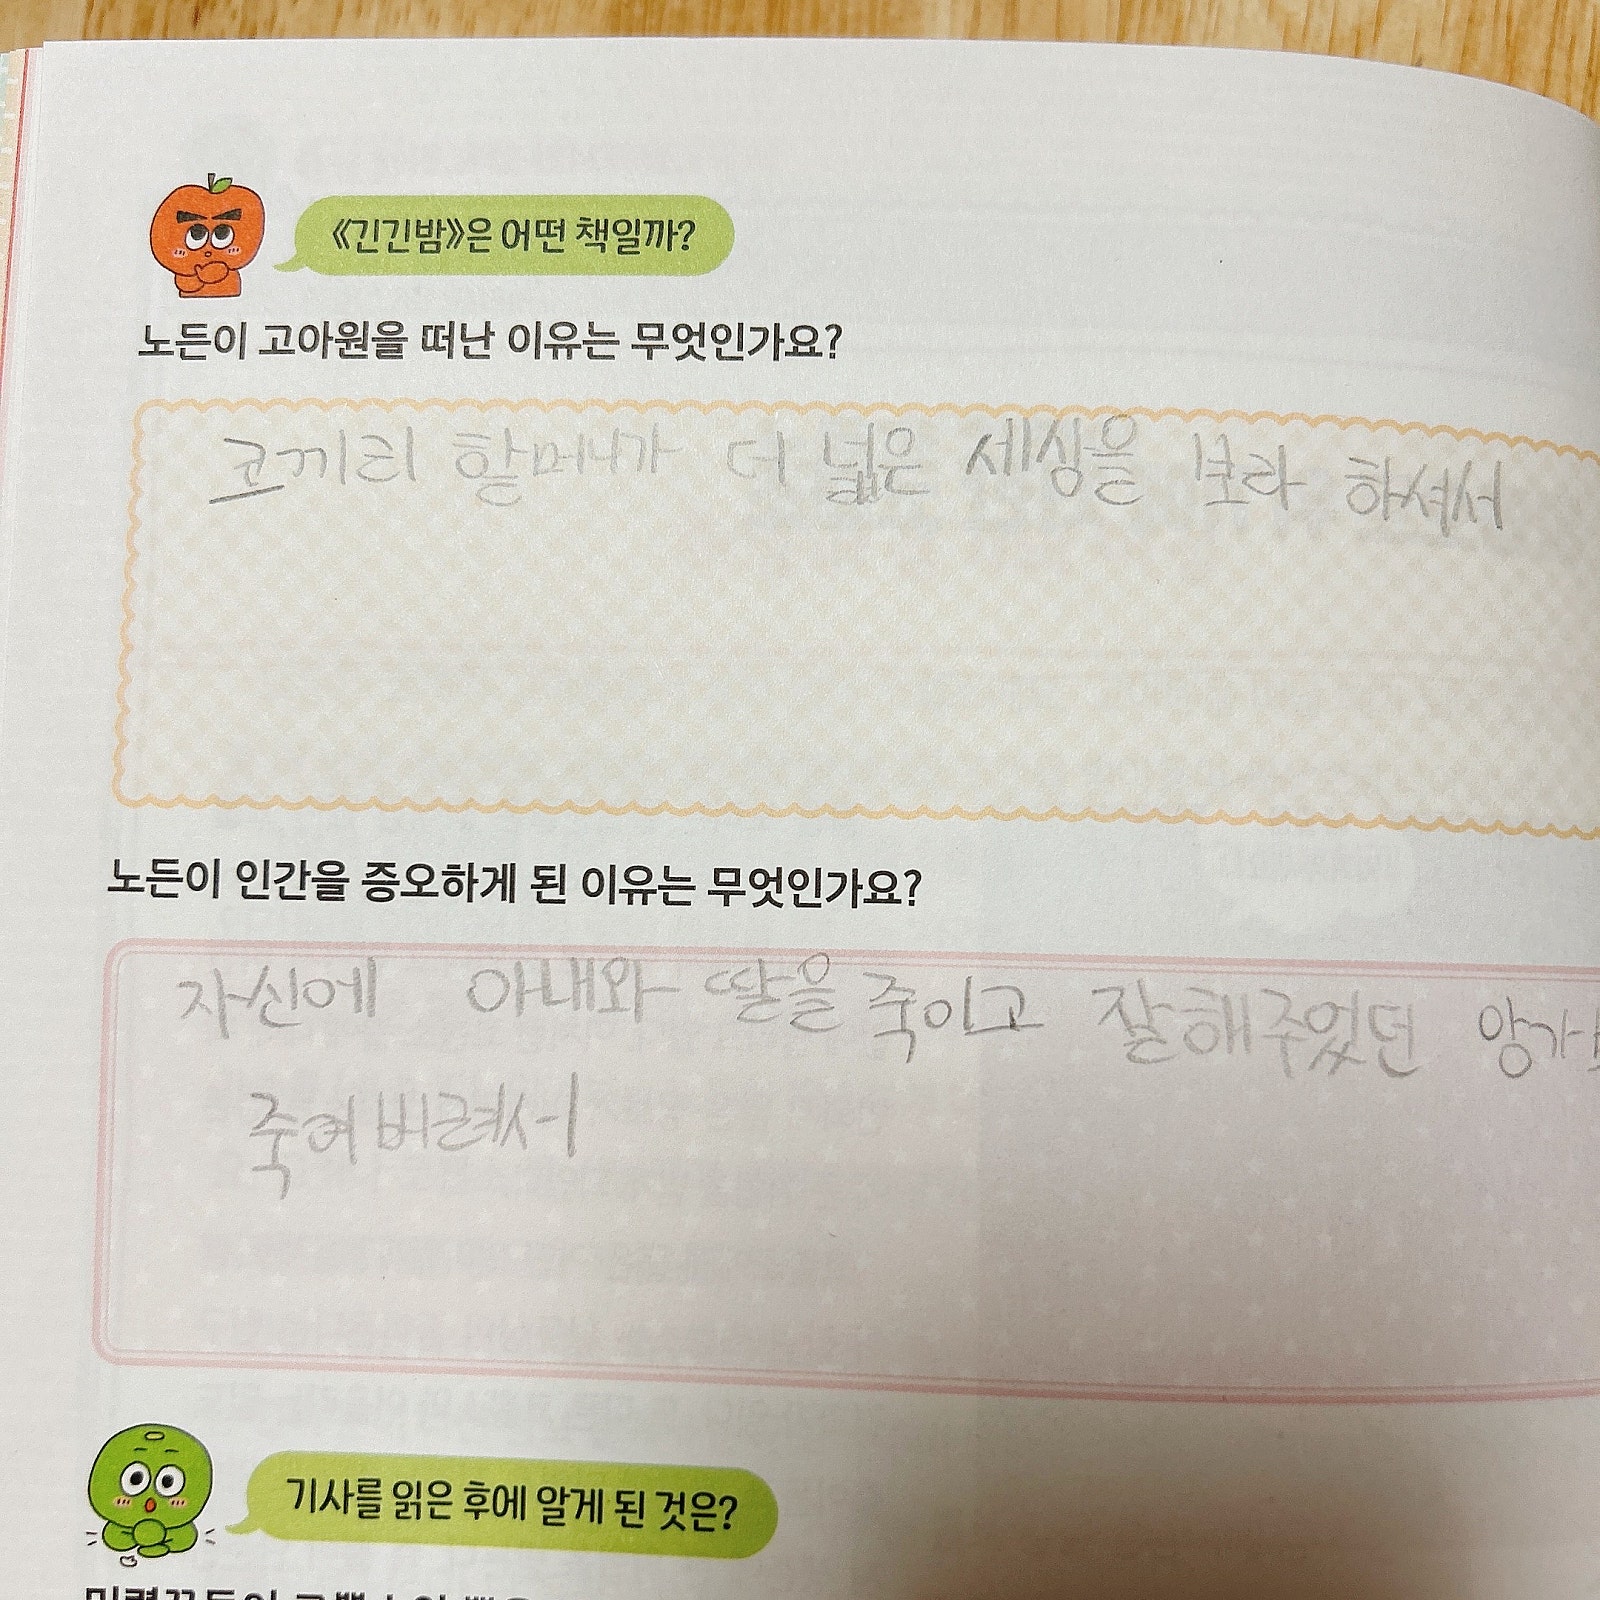 《긴긴밤》은 어떤 책일까?
노든이 고아원을 떠난 이유는 무엇인가요?
코끼리 할머니가 더 넓은 세상을 보라 하셔서
노든이 인간을 증오하게 된 이유는 무엇인가요?
자신에 아내와 딸을 죽이고 잘해주었던
죽여버려서
기사를 읽은 후에 알게 된 것은?